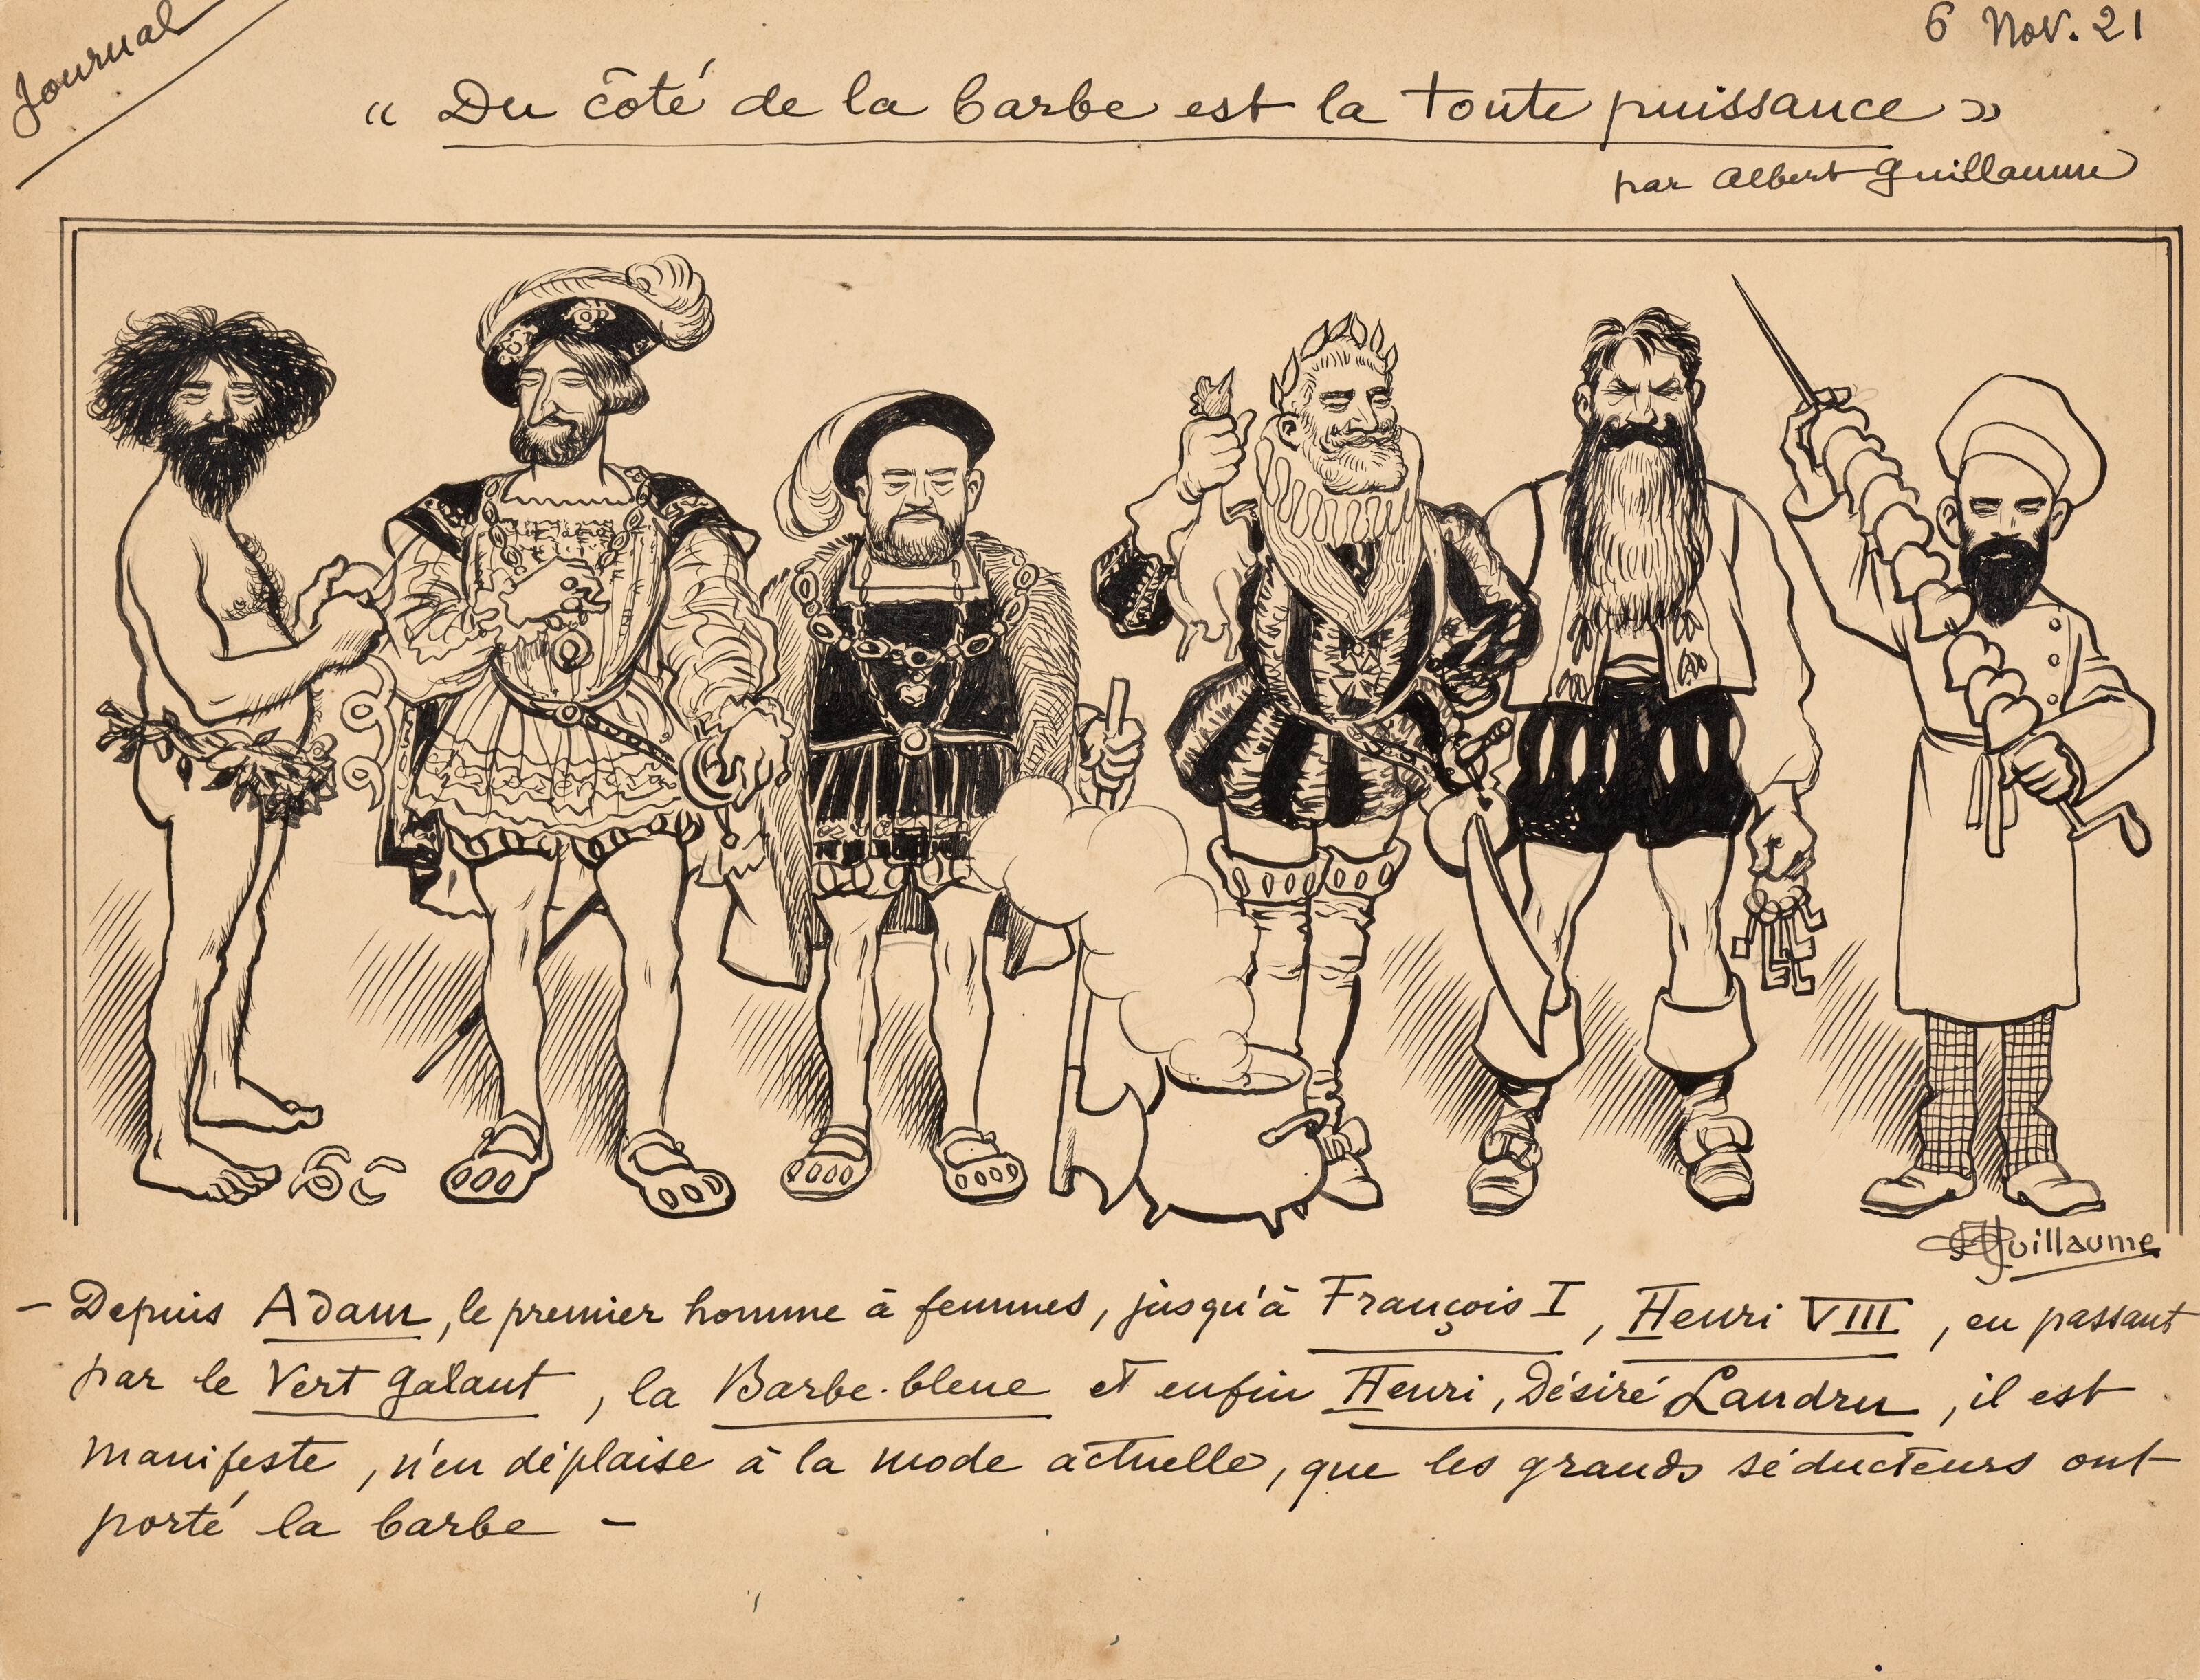 Journal
6 Nov. 21
« Du côté de la barbe est la toute puissance »
par Albert Guillaume
Guillaume
- Depuis Adam, le premier homme à femmes, jusqu'à François I, Henri VIII, en passant
par le Vert galant, la Barbe-bleue et enfin Henri, Désiré Landru, il est
manifeste, n'en déplaise à la mode actuelle, que les grands séducteurs ont
porté la barbe -